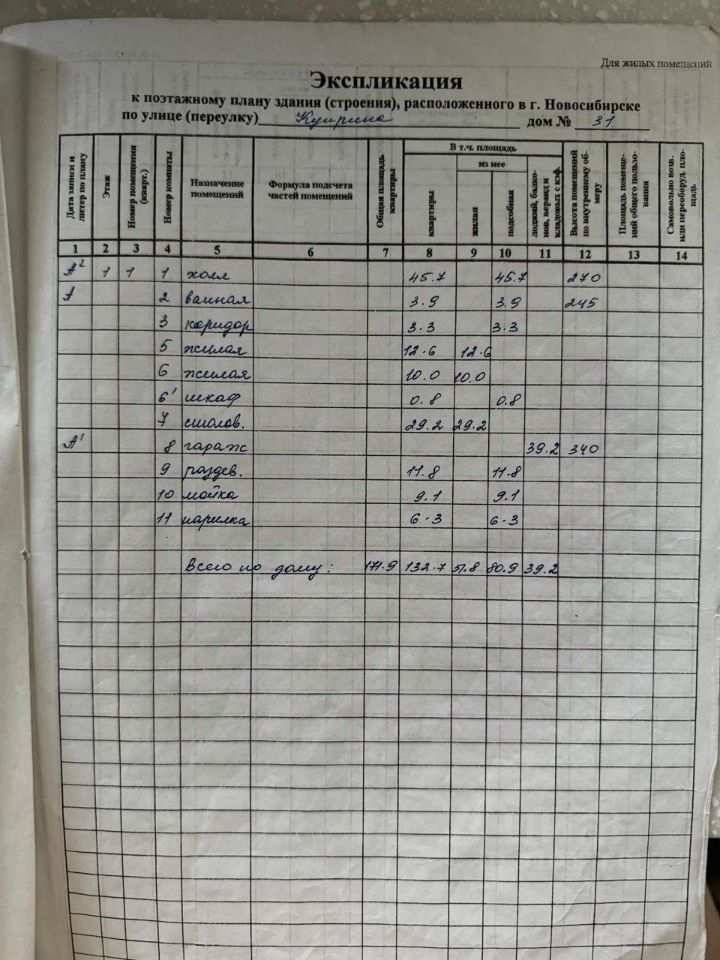 Для жилых помещений
Экспликация
к поэтажному плану здания (строения), расположенного в г. Новосибирске
по улице (переулку) Куприна дом № 31
Дата записи и литер по плану
Этаж
Номер помещения (кварт.)
Номер комнаты
Назначение помещений
Формула подсчета частей помещений
Общая площадь квартиры
В т.ч. площадь
квартиры
из нее
жилая
подсобная
лоджий, балконов, веранд и кладовых с кэф.
Высота помещений по внутреннему обмеру
Площадь помещений общего пользования
Самовольно возв. или переоборуд. площадь
1 2 3 4 5 6 7 8 9 10 11 12 13 14
А² 1 1 1 холл 45.7 45.7 270
А 2 ванная 3.9 3.9 245
3 коридор 3.3 3.3
5 жилая 12.6 12.6
6 жилая 10.0 10.0
6' шкаф 0.8 0.8
7 столов. 29.2 29.2
А¹ 8 гараж 39.2 340
9 раздев. 11.8 11.8
10 мойка 9.1 9.1
11 парилка 6.3 6.3
Всего по дому: 171.9 132.7 51.8 80.9 39.2